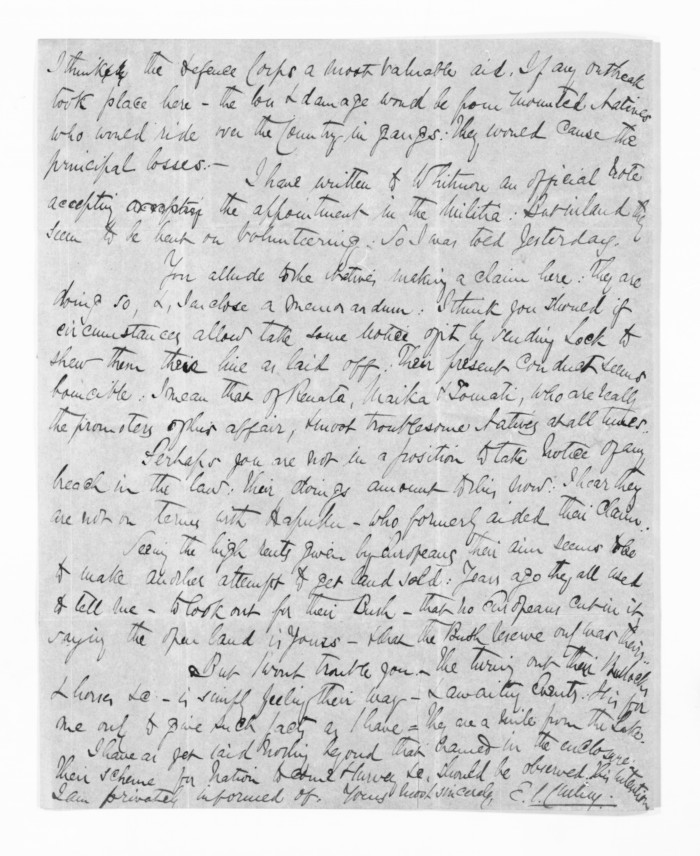 I think the Defence Corps a most valuable aid. If any outbreak
took place here - the loss & damage would be from mounted Natives
who would ride over the Country in gangs: They would cause the
principal losses: -
I have written to Whitmore an official note
accepting the appointment in the Militia: But inland they
seem to be bent on Volunteering: So I was told Yesterday.
You allude to the Natives making a claim here: they are
doing so, &, I enclose a memorandum: I think you should if
circumstances allow take some notice of it by sending Lock to
shew them their line as laid off: Their present conduct seems
: I mean that of Renata, Maika & Tomati, who are really
the promoters of this affair, & most troublesome Natives at all times.
Perhaps you are not in a position to take notice of any
breach in the law: Their doings amount to this now: I hear they
are not on terms with Hapuku - who formerly aided their claim.
Seeing the high rents given by Europeans their aim seems to be
to make another attempt to get land sold: Years ago they all used
to tell me - to look out for their Bush - that no Europeans cut in it
saying the open land is Yours - & that the Bush reserve only was theirs -
But I wont trouble you - The turning out their Bullocks
& horses &c - is simply feeling their way - & awaiting Events. It is for
me only to give such facts as I have = They are a mile from the Lake.
I have as yet said nothing beyond that claimed in the enclosure
Their scheme for to come & survey &c, should be observed. This intention
I am privately informed of. Yours most sincerely,